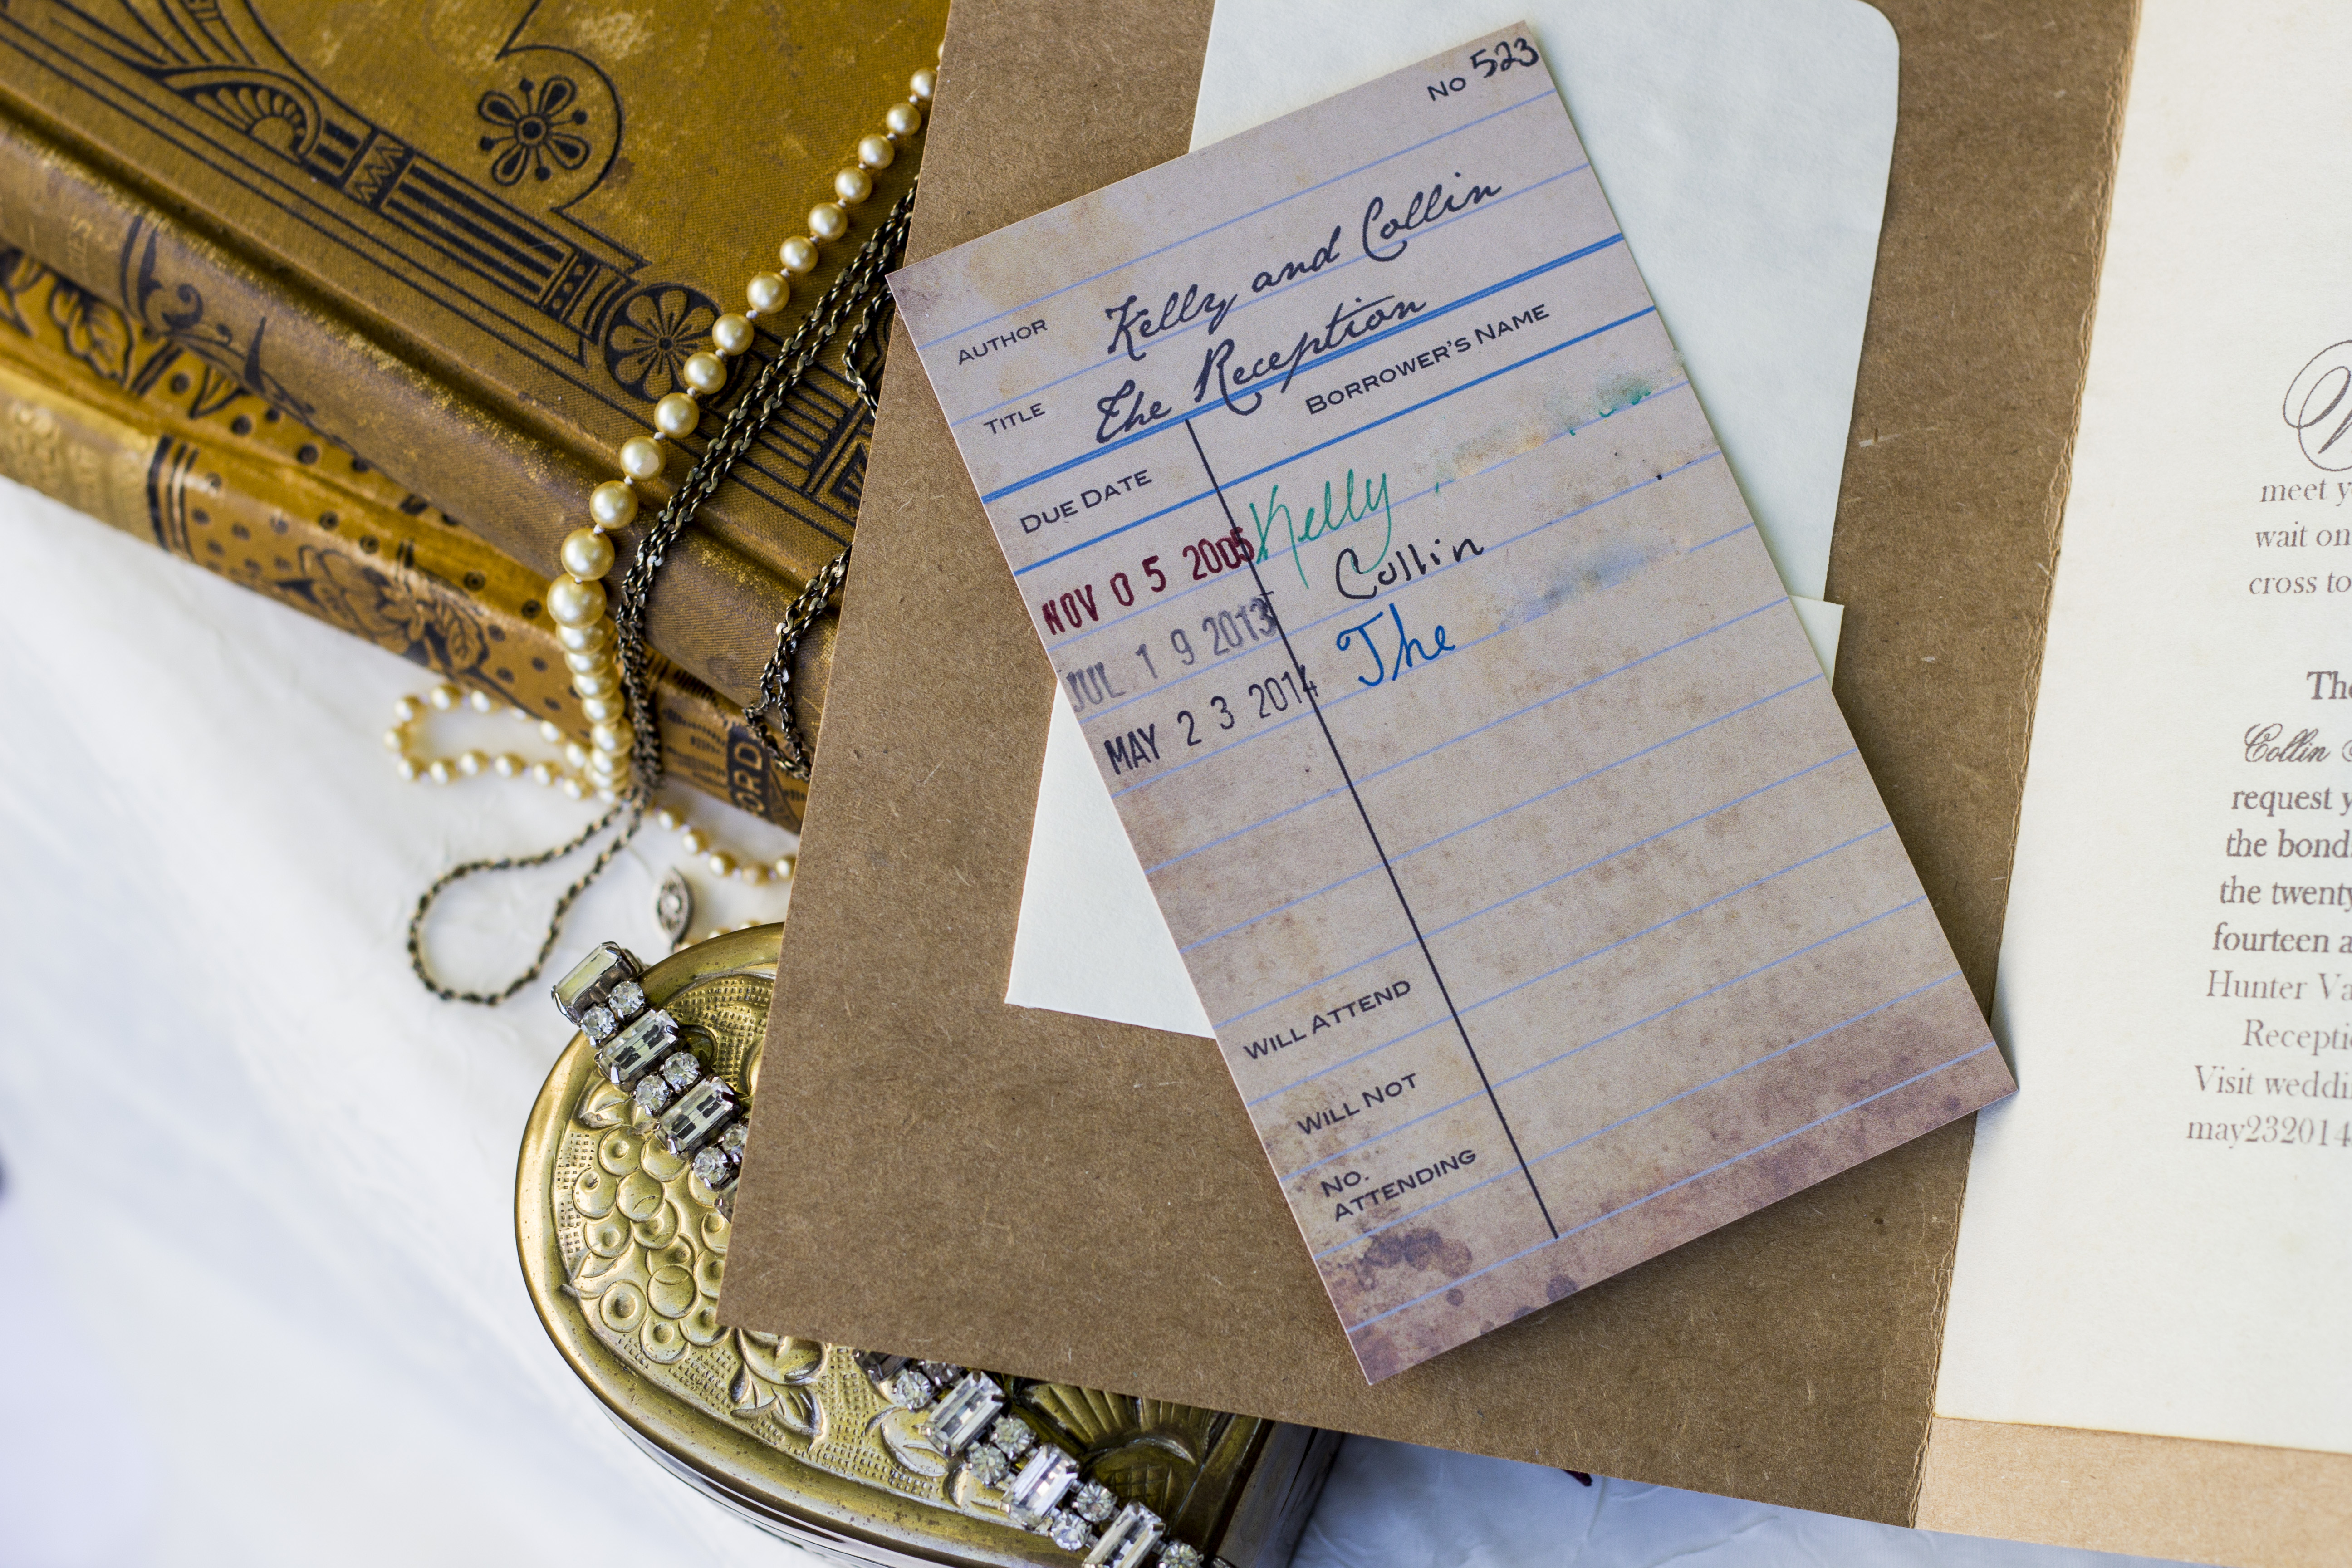 No 523
AUTHOR Kelly and Collin
TITLE The Reception
DUE DATE BORROWER'S NAME
NOV 05 2005 Kelly
JUL 19 2013 Collin
MAY 23 2014 The
WILL ATTEND
WILL NOT
NO.
ATTENDING
ORD
meet y
wait on
cross to
The
Collin
request y
the bond
the twenty
fourteen a
Hunter Va
Recepti
Visit weddi
may232014